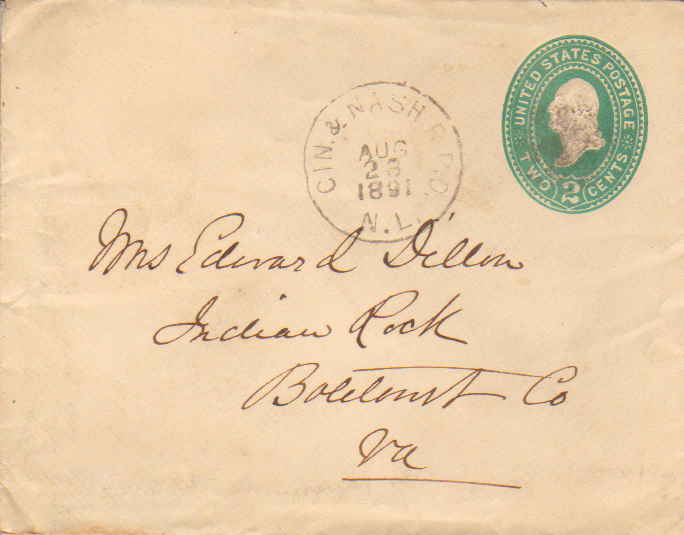 UNITED STATES POSTAGE
TWO 2 CENTS
CIN. & NASH R.P.O.
AUG
23
1891
N.L.
Mrs Edward Dillon
Indian Rock
Botetourt Co
Va